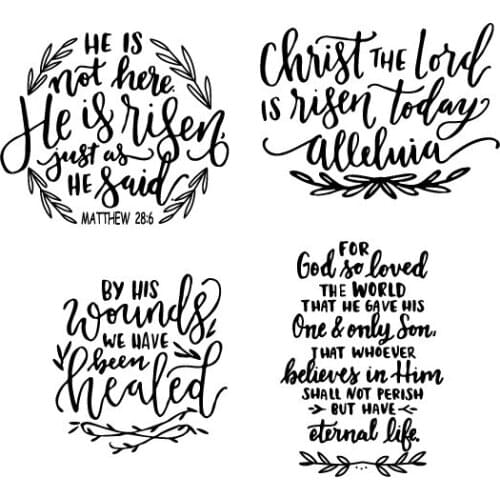 HE IS
not here.
He is risen,
just as
HE said
MATTHEW 28:6
Christ THE Lord
IS risen today
alleluia
BY HIS
wounds
WE HAVE
been
healed
FOR
God so loved
THE WORLD
THAT HE GAVE HIS
One & only Son,
THAT WHOEVER
believes in Him
SHALL NOT PERISH
BUT HAVE
eternal life.